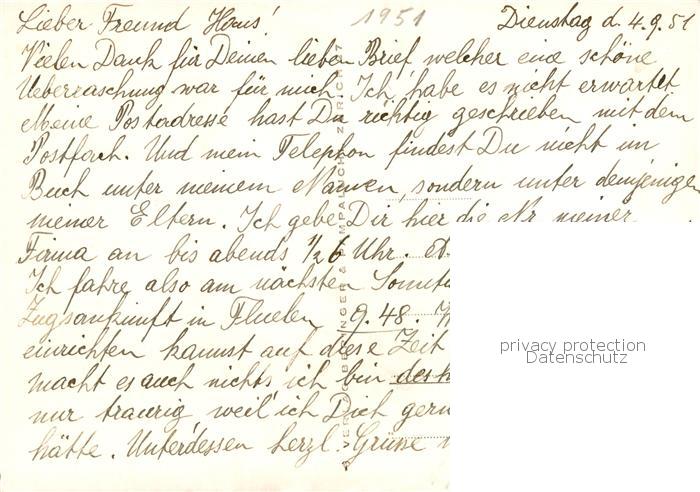 Lieber Freund Hans! 1951 Dienstag d. 4.9.51
Vielen Dank für Deinen lieben Brief welcher eine schöne
Ueberraschung war für mich. Ich habe es nicht erwartet.
Meine Postadresse hast Du richtig geschrieben mit dem
Postfach. Und mein Telephon findest Du nicht im
Buch unter meinem Namen, sondern unter demjenigen
meiner Eltern. Ich gebe Dir hier die Nr. meiner
Firma an bis abends 1/2 6 Uhr.
Ich fahre also am nächsten
Zugsankunft in Fluelen 9.48.
einrichten kannst auf diese Zeit
macht es auch nichts ich bin
nur traurig weil ich Dich
hätte. Unterdessen herzl. Grüsse
privacy protection
Datenschutz